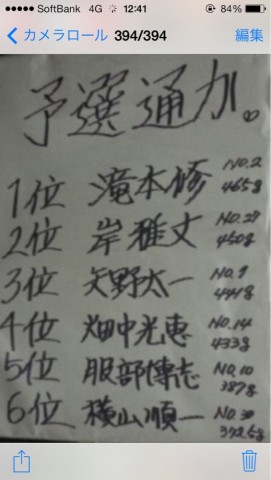 SoftBank 4G 12:41 84%
カメラロール 394/394 編集
予選通力。
1位 滝本修 NO.2
465g
2位 岸雅丈 NO.27
450g
3位 矢野太一 NO.9
441g
4位 畑中光恵 NO.14
433g
5位 服部傳志 NO.10
387g
6位 横山順一 NO.30
372.5g